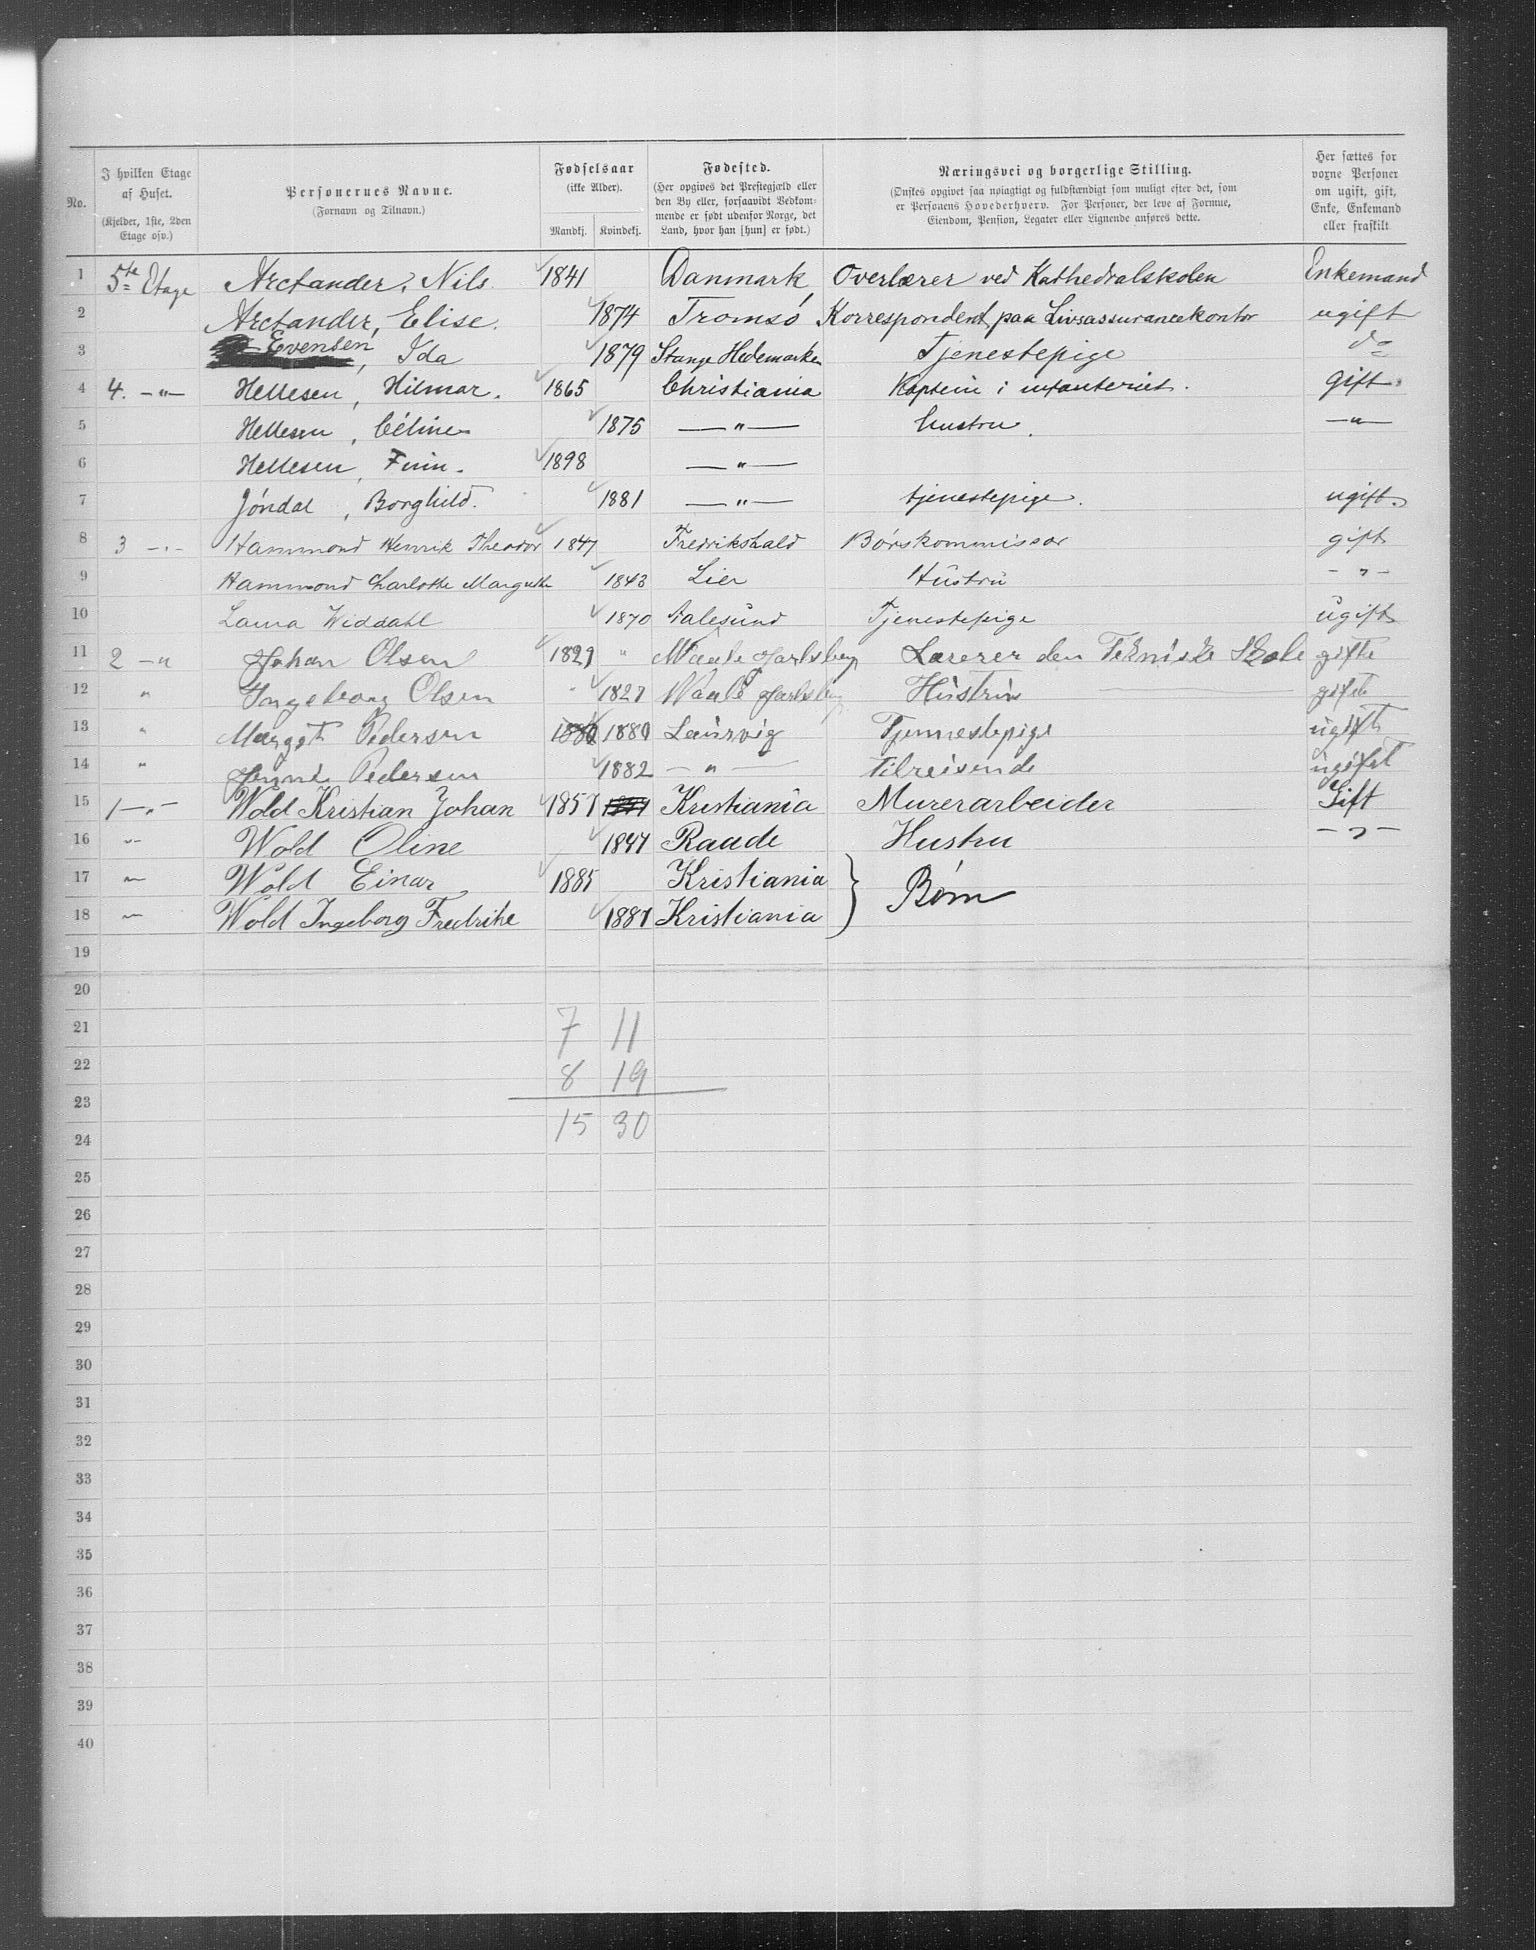 No. I hvilken Etage af Huset. (Kjelder, 1ste, 2den Etage osv.) Personernes Navne. (Fornavn og Tilnavn.) Fødselsaar (ikke Alder). Mandkj. Kvindekj. Fødested. (Her opgives det Prestegjæld eller den By eller, forsaavidt Vedkommende er født udenfor Norge, det Land, hvor han [hun] er født.) Næringsvei og borgerlige Stilling. (Ønskes opgivet saa nøiagtigt og fuldstændigt som muligt efter det, som er Personens Hovederhverv. For Personer, der leve af Formue, Eiendom, Pension, Legater eller Lignende anføres dette. Her sættes for voxne Personer om ugift, gift, Enke, Enkemand eller fraskilt
1 5te Etage Arctander, Nils. 1841 Danmark Overlærer ved Kathedralskolen Enkemand
2 Arctander, Elise. 1874 Tromsø Korrespondent paa Livsassurancekontor ugift
3 Evensen, Ida 1879 Stange Hedemarken Tjenestepige do
4 4. -"- Hellesen, Hilmar. 1865 Christiania Kaptein i infanteriet. gift.
5 Hellesen, Céline 1875 -"- hustru. -"-
6 Hellesen, Finn. 1898 -"-
7 Jøndal, Borghild. 1881 -"- tjenestepige. ugift.
8 3 -"- Hammond Henrik Theodor 1847 Fredrikshald Børskommissær gift
9 Hammond Charlotte Margrethe 1843 Lier Hustru -"-
10 Laura Widdahl 1870 Aalesund Tjenestepige ugift
11 2 -" Johan Olsen 1829 " Waale Jarlsberg Lærerer den Tekniske Skole gifte
12 " Ingeborg Olsen " 1827 Waale Jarlsberg Hustru gifte
13 " Margot Pedersen 1880 1880 Laurvig Tjennestepige ugift
14 " Pedersen 1882 -"- tilreisende ugift
15 1 -"- Wold Kristian Johan 1857 Kristiania Murerarbeider Gift
16 -"- Wold Oline 1847 Raade Hustru -"-
17 -"- Wold Einar 1885 Kristiania } Børn
18 -"- Wold Ingeborg Fredrikke 1887 Kristiania
19
20
21 7 11
22 8 19
23
24 15 30
25
26
27
28
29
30
31
32
33
34
35
36
37
38
39
40